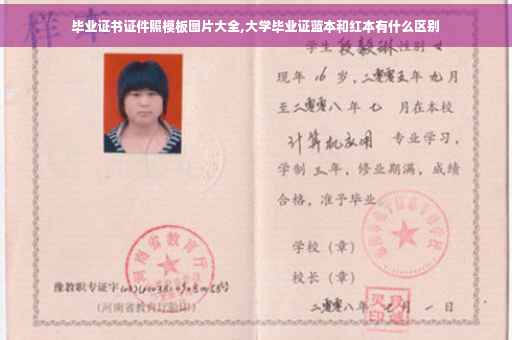 毕业证书证件照模板图片大全,大学毕业证蓝本和红本有什么区别
样本
学生 段毅琳 性别 女
现年 16 岁,二零零五年 九月
至二零零八年 七 月在本校
计算机应用 专业学习,
学制 三年,修业期满,成绩
合格,准予毕业
学校(章)
校长(章)
二零零八年 月 一 日
河南省教育厅
豫教职专证字
(河南省教育厅验印)